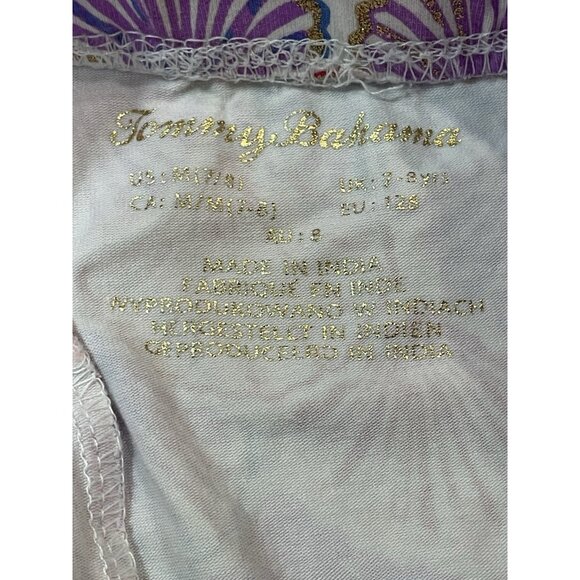 Tommy Bahama
US: M(7/8) UK: 7-8yrs
CA: M/M(7-8) EU: 128
AU: 8
MADE IN INDIA
FABRIQUÉ EN INDE
WYPRODUKOWANO W INDIACH
HERGESTELLT IN INDIEN
GEPRODUCEERD IN INDIA